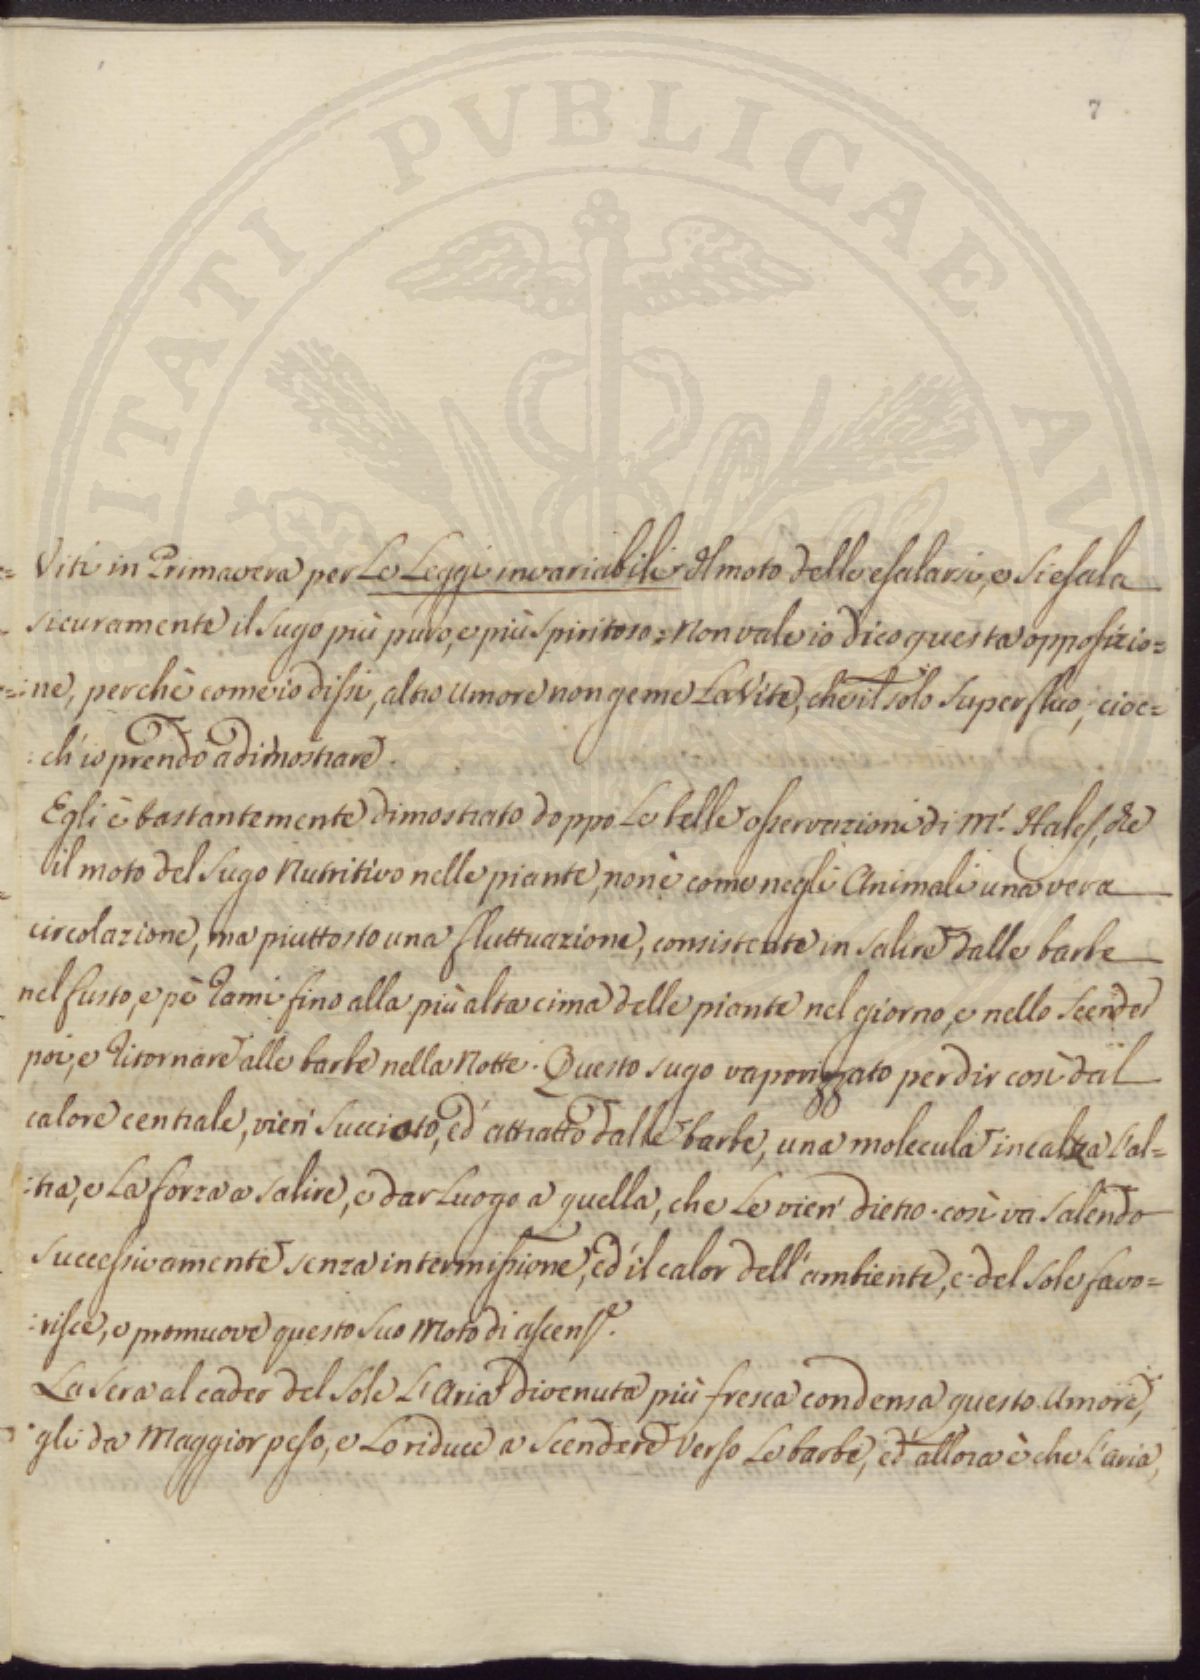 7
PUBLICAE
Viti in Primavera per Le Leggi invariabili del moto delle esalarsi, e si esala
sicuramente il sugo più puro, e più spiritoso = Non vale io dico questa opposizio=
=ne, perchè come io dissi, altro umore non geme La Vite, che il solo superfluo; cioe=
:ch'io prendo a dimostrare.
Egli è bastantemente dimostrato doppo Le belle osservazioni di Mr. Hales, che
il moto del sugo Nutritivo nelle piante, non è come negli Animali una vera
circolazione, ma piuttosto una fluttuazione, consistente in salire dalle barbe
nel fusto, e pè rami fino alla più alta cima delle piante nel giorno, e nello scender
poi, e ritornare alle barbe nella Notte. Questo sugo vaporizzato per dir così dal
calore centrale, vien' succiato, ed' attratto dalle barbe, una molecula incalza l'al=
:tra, e La forza a salire, e dar Luogo a quella, che Le vien' dietro. così va salendo
successivamente senza intermissione, ed' il calor dell'ambiente, e del sole favo=
:risce, e promuove questo suo Moto di ascenso.
La sera al cader del sole L'Aria divenuta più fresca condensa questo umore,
gli da Maggior peso, e Lo riduce a scendere verso Le barbe, ed' allora è che l'aria,